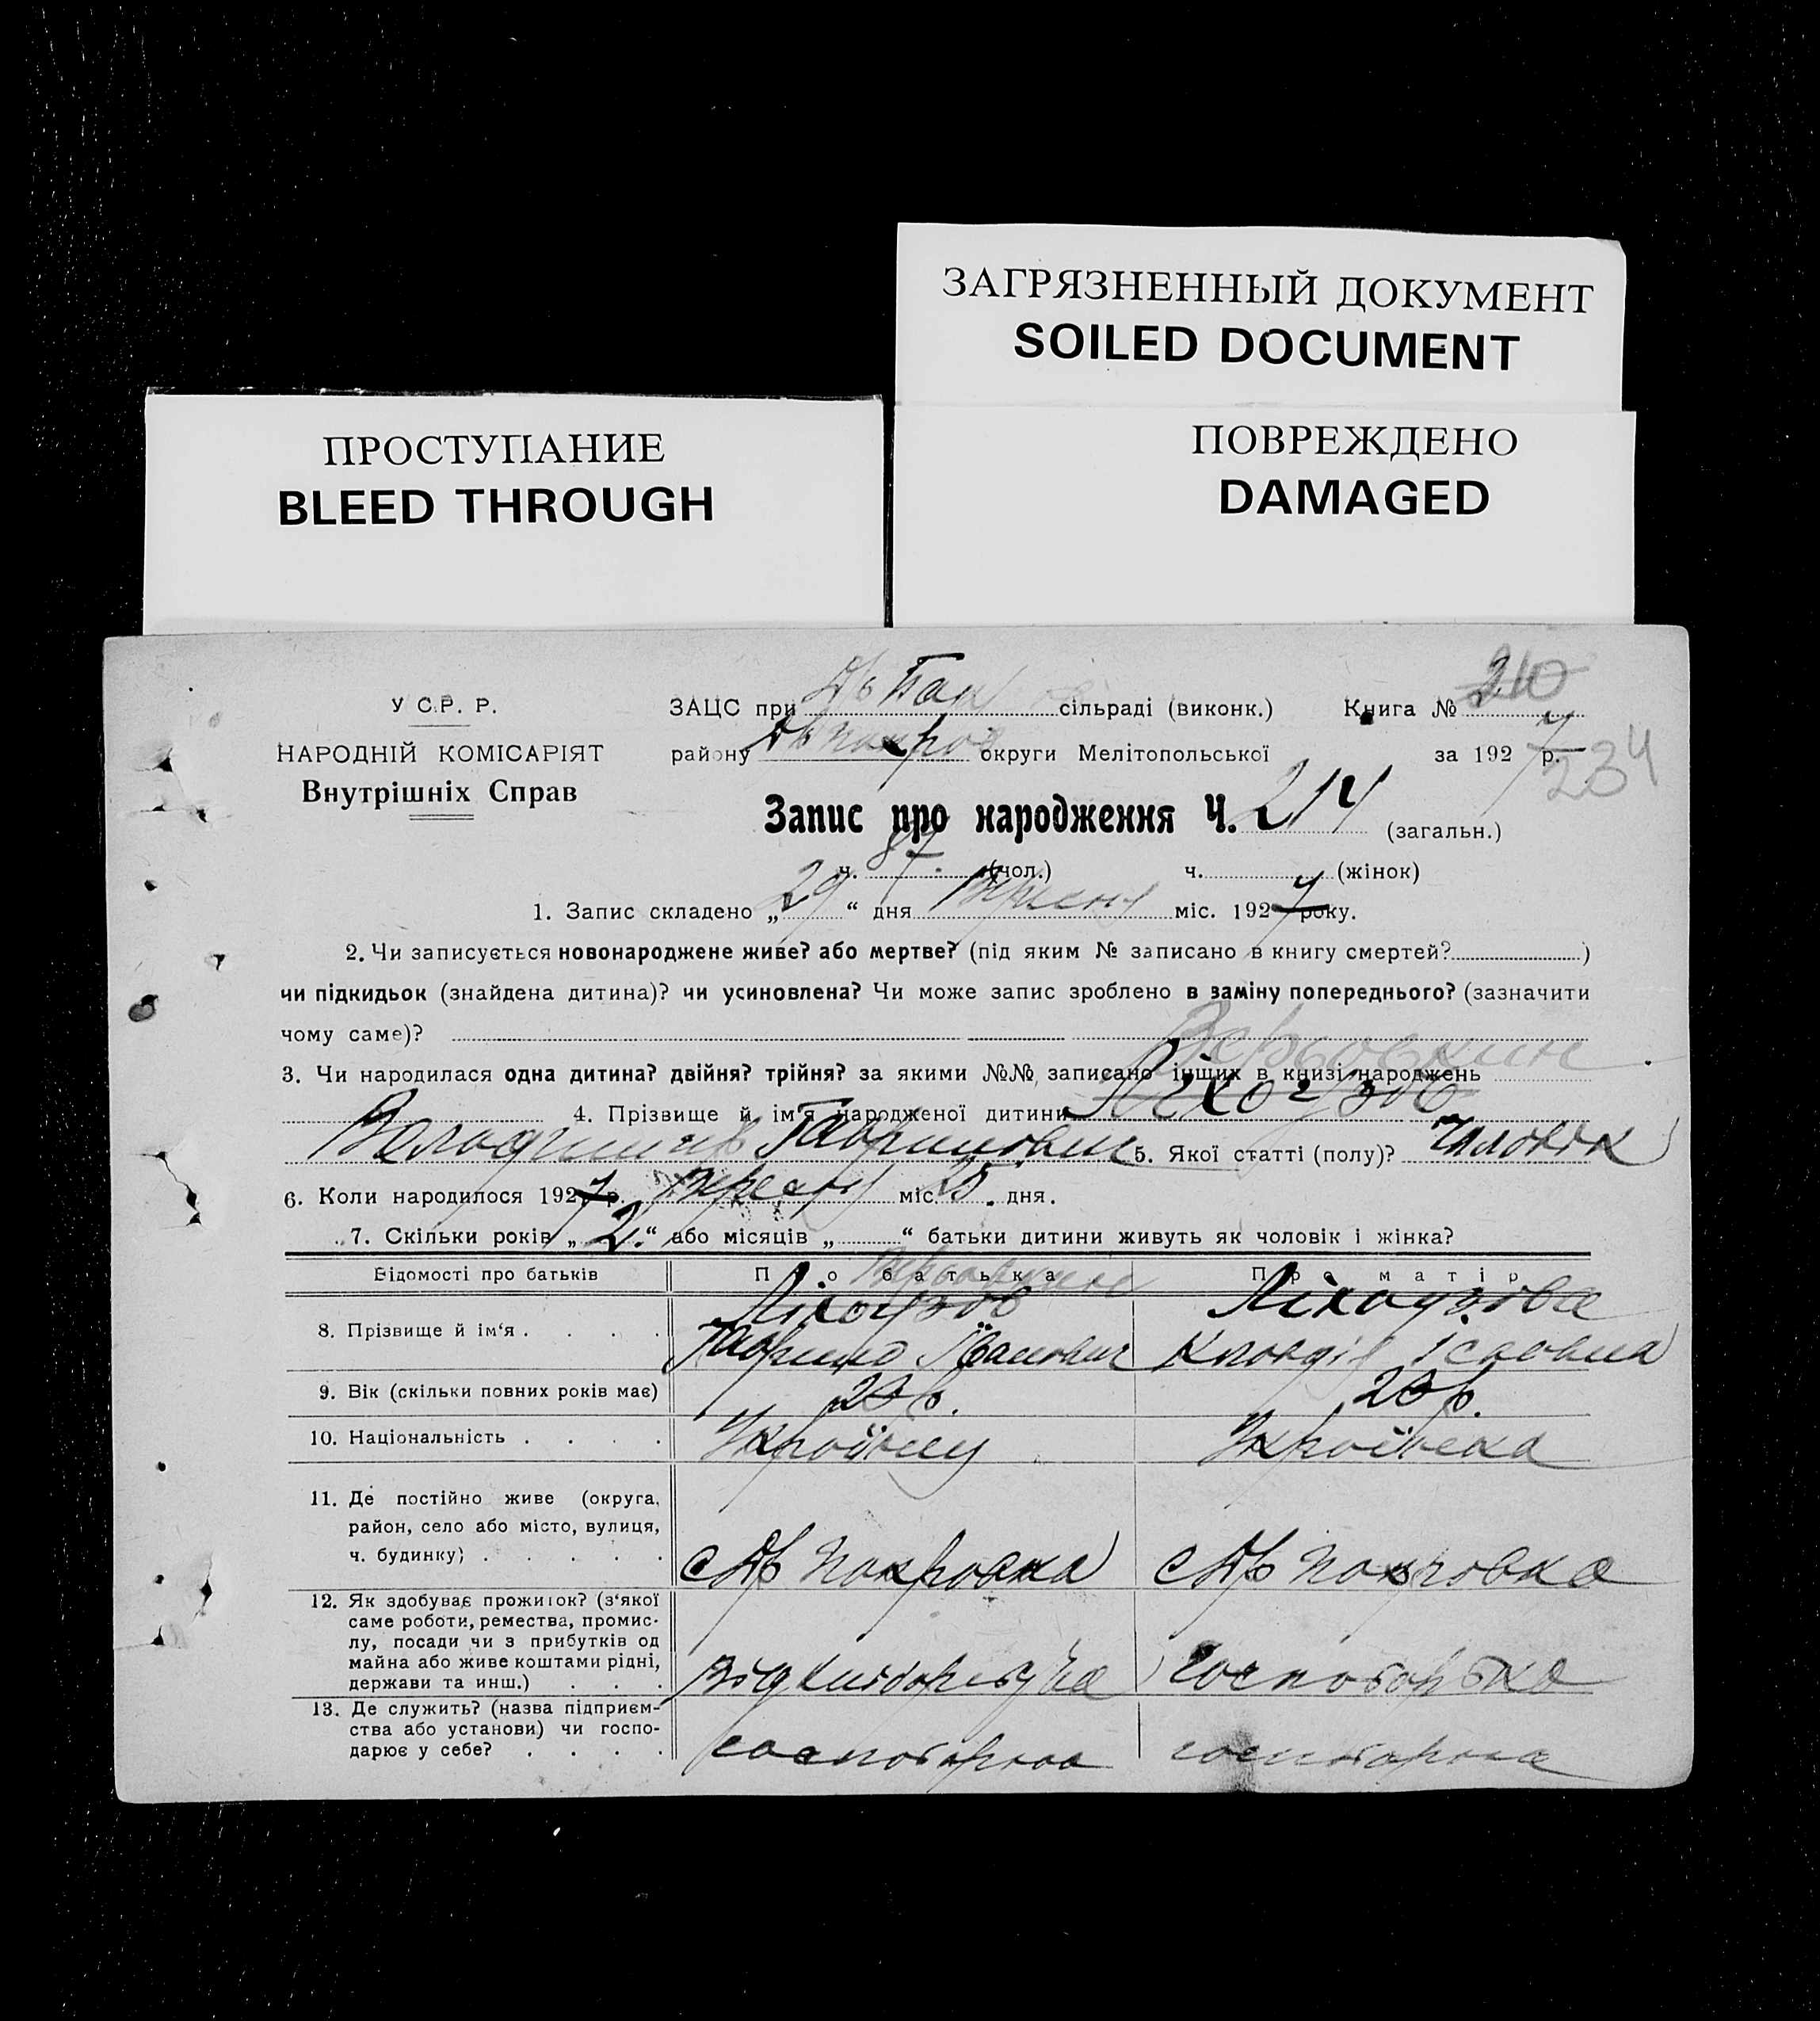 ЗАГРЯЗНЕННЫЙ ДОКУМЕНТ
SOILED DOCUMENT
ПРОСТУПАНИЕ
BLEED THROUGH
ПОВРЕЖДЕНО
DAMAGED
210
У С.Р. Р.
ЗАЦС при сільраді (виконк.) Книга №
НАРОДНІЙ КОМІСАРІЯТ
району округи Мелітопольської за 1927 р.
234
Внутрішніх Справ
Запис про народження Ч. 214 (загальн.)
ч. 87. (чол.) ч. (жінок)
1. Запис складено „29“ дня Вересня міс. 1927 року.
2. Чи записується новонароджене живе? або мертве? (під яким № записано в книгу смертей? )
чи підкидьок (знайдена дитина)? чи усиновлена? Чи може запис зроблено в заміну попереднього? (зазначити
чому саме)?
3. Чи народилася одна дитина? двійня? трійня? за якими №№ записано інших в книзі народжень
4. Прізвище й ім'я народженої дитини
Гаврилович 5. Якої статті (полу)? Чиловік
6. Коли народилося 1927 р. Вересня міс. 25. дня.
7. Скільки років „2.“ або місяців „ “ батьки дитини живуть як чоловік і жінка?
Відомості про батьків Про батька Про матір
8. Прізвище й ім'я . . . . Ліхоузов Ліхоузова
Гаврило Іванович Кловдія Ісаовна
9. Вік (скільки повних років має)
10. Національність . . . . Україниц Українка
11. Де постійно живе (округа,
район, село або місто, вулиця,
ч. будинку) . . . . . с Др Покровка с Др Покровка
12. Як здобуває прожиток? (з'якої
саме роботи, ремества, промис-
лу, посади чи з прибутків од
майна або живе коштами рідні,
держави та инш.) . . .
13. Де служить? (назва підприєм-
ства або установи) чи госпо-
дарює у себе? . . . .